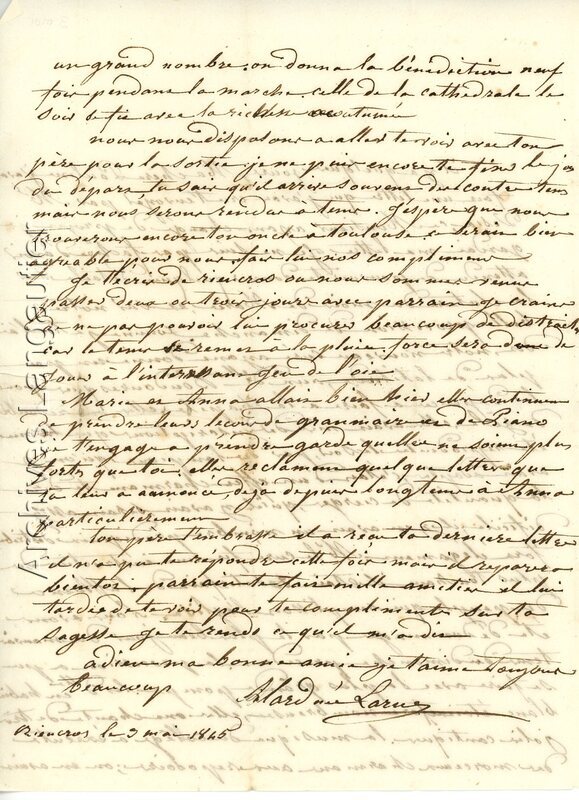 un grand nombre. on donna la bénédiction neuf
fois pendant la marche. celle de la cathedrale le
soir se fit avec la richesse acoutumée
nous nous disposons a aller te voir avec ton
père pour la sortie. je ne puis encore te fixer le jour
du départ. tu sais qu'il arrive souvent des contre tems
mais nous serons rendus à tems. J'espère que nous
trouverons encore ton oncle à toulouse ce serait bien
agréable pour nous. fais lui nos compliments
Je t'écris de riencros ou nous sommes venus
passer deux ou trois jours avec parrain. je crains
de ne pas pouvoir lui procurer beaucoup de distract
car le tems se remet à la pluie. force sera donc de
jouer à l'interessant Jeu de l'oie
Marie et Anna allait bien hier elles continuent
a prendre leurs leçons de grammaire et de Piano
je t'engage a prendre garde quelles ne soient plus
fortes que toi. elles reclament quelque lettres que
tu leur a annoncé déjà depuis longtems à Anna
particulièrement
ton père t'embrasse il a reçu ta dernière lettre
il n'a pu te répondre cette fois mais il réparera
bientot. parrain te fait mille amitiés il lui
tarde de te voir pour te complimenter sur ta
sagesse je te rends ce qu'il m'a dit
adieu ma bonne amie je t'aime toujours
beaucoup
Alard née Larue
Riencros le 3 mai 1845
Archives Languetier